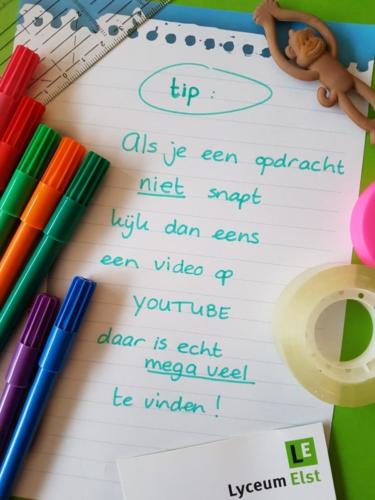 tip :
Als je een opdracht
niet snapt
kijk dan eens
een video op
YOUTUBE
daar is echt
mega veel
te vinden !
LE
Lyceum Elst